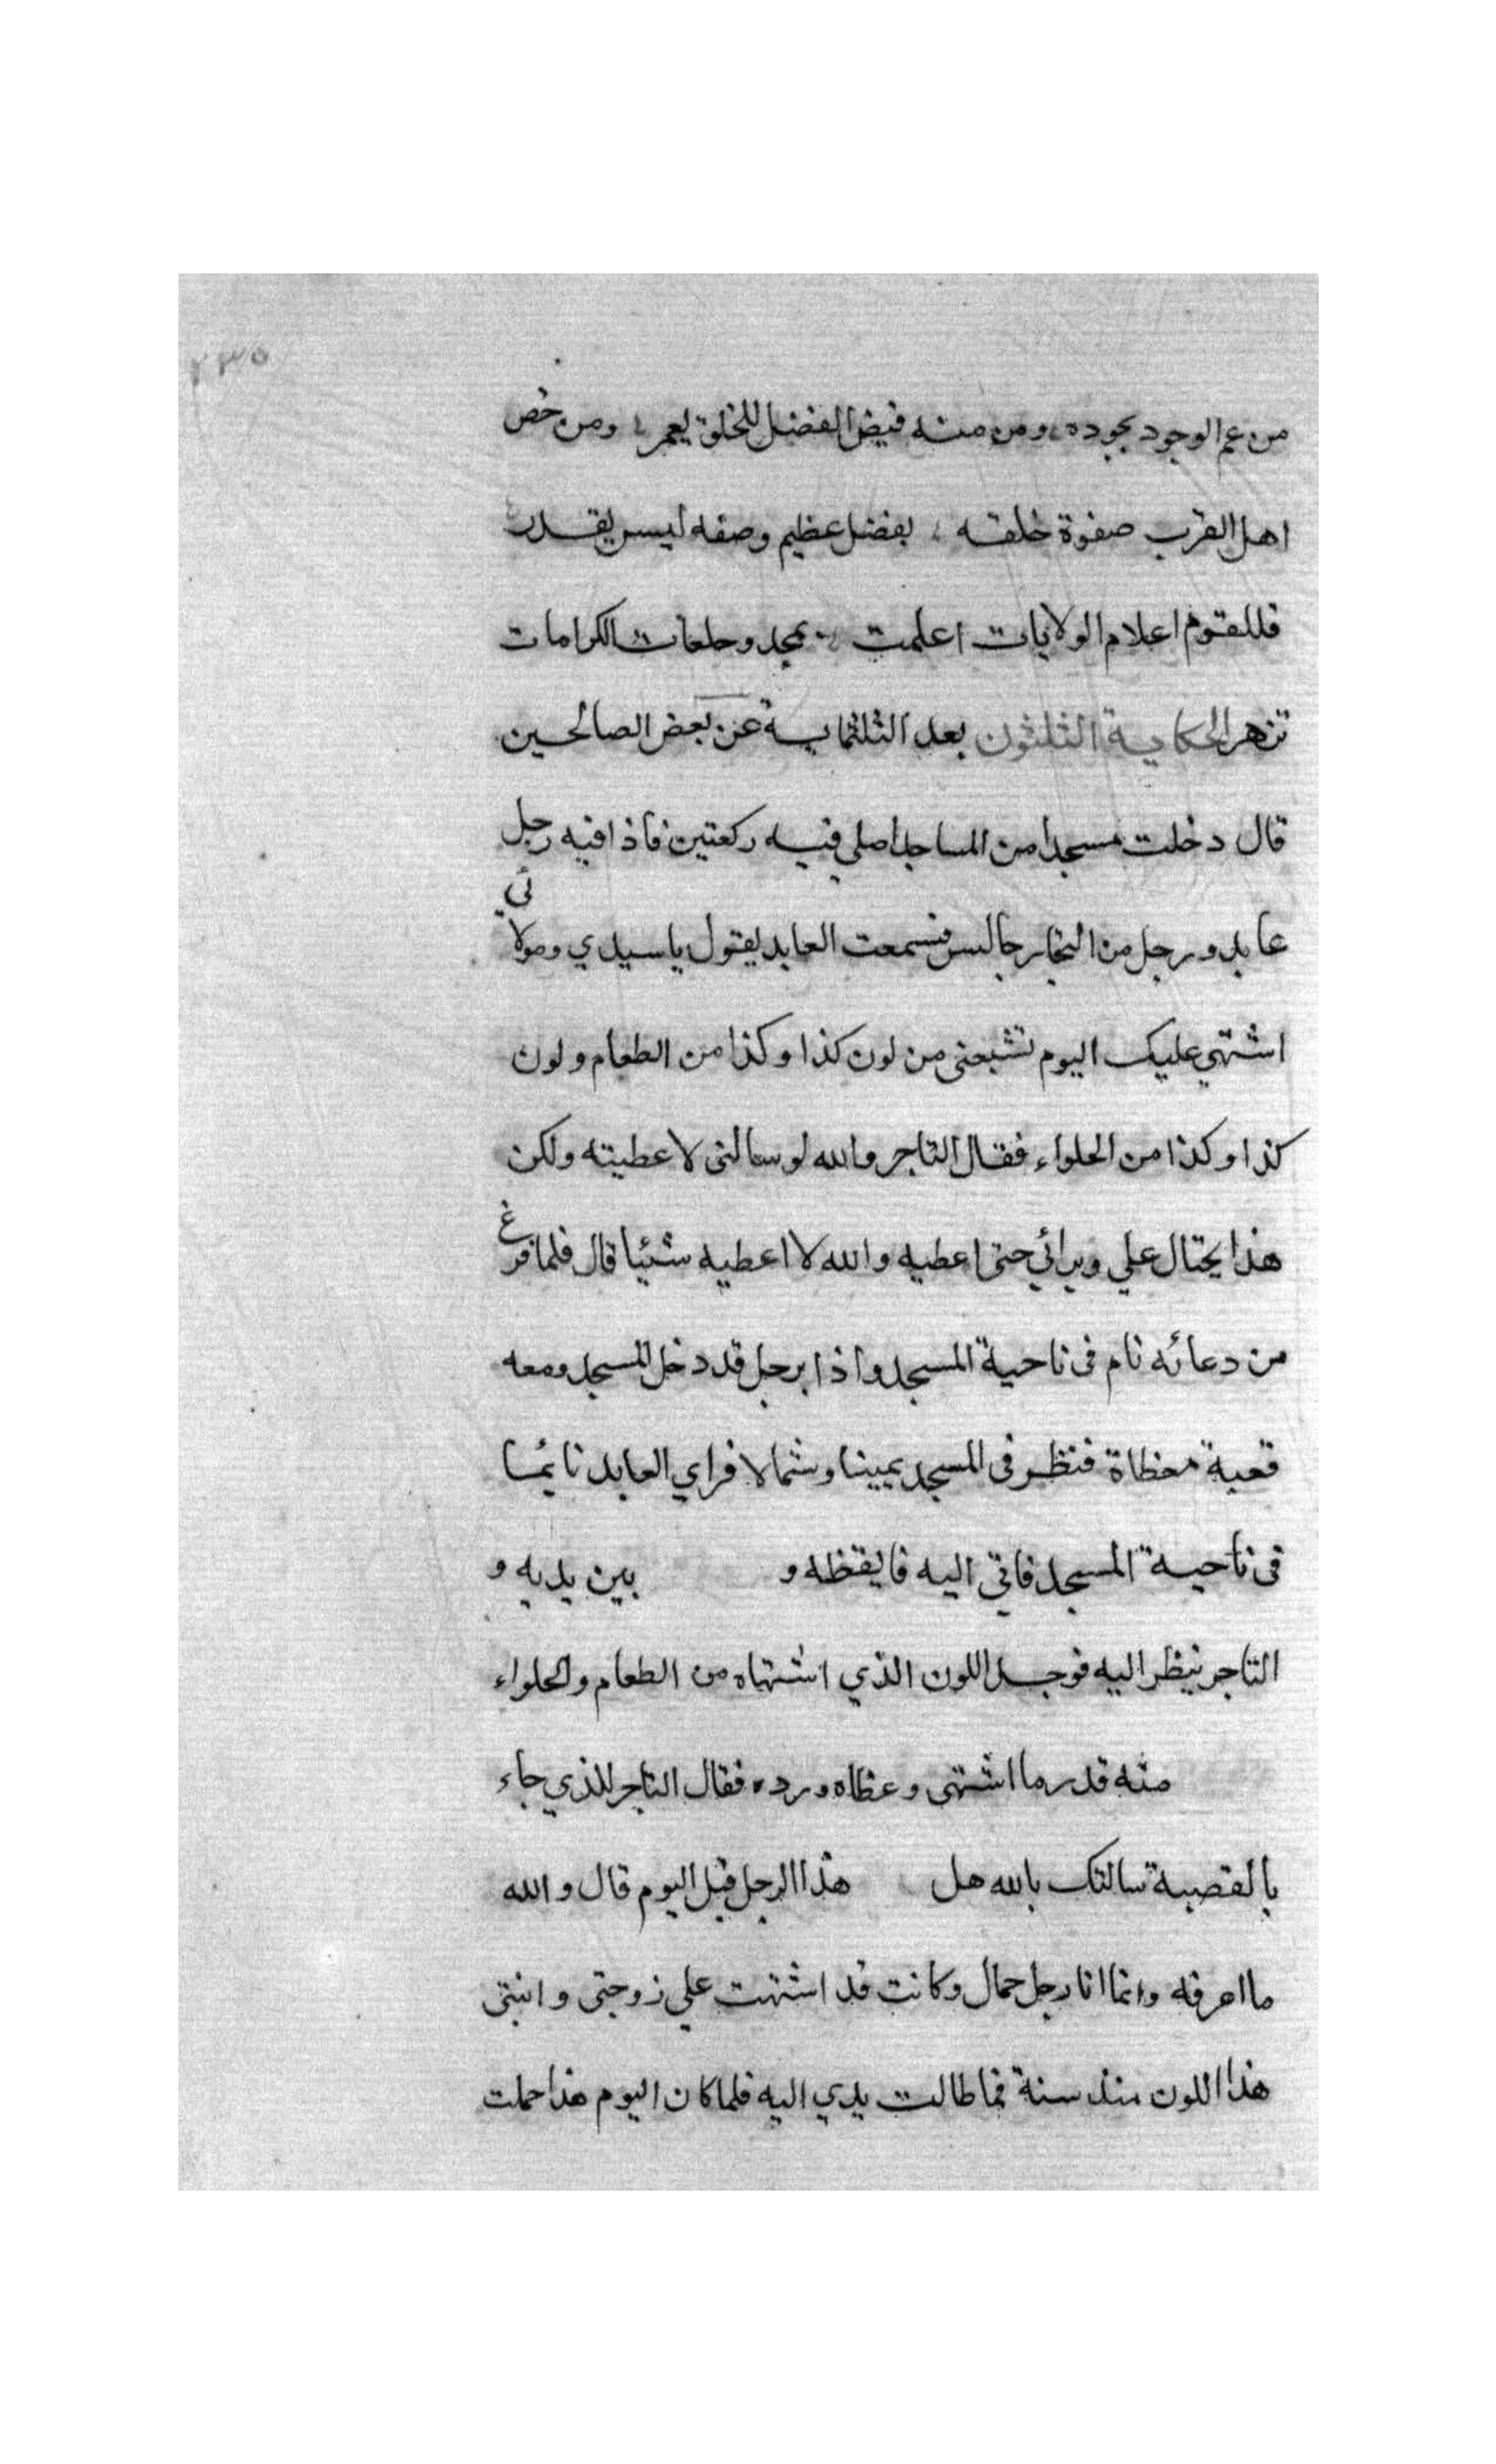 ٢٣٥
من عم الوجود بجوده ومن منه فيض الفضل للخلق يعمر ومن خص
اهل القرب صفوة خلقه بفضل عظيم وصفه ليس يقدر
فللقوم اعلام الولايات اعلمت بمجد وخلعات الكرامات
تزهر الحكاية الثلثون بعد الثلثماية عن بعض الصالحين
قال دخلت مسجدا من المساجد اصلي فيه ركعتين فاذا فيه رجل
عابد ورجل من التجار جالس فسمعت العابد يقول يا سيدي ومولائي
اشتهي عليك اليوم تشبعني من لون كذا وكذا من الطعام ولون
كذا وكذا من الحلواء فقال التاجر والله لو سالني لاعطيته ولكن
هذا يحتال علي ويرائي حتى اعطيه والله لا اعطيه شئيا قال فلما فرغ
من دعائه نام فى ناحية المسجد واذا برجل قد دخل المسجد ومعه
قعبة مغطاة فنظر فى المسجد يمينا وشمالا فراي العابد نايمًا
فى ناحية المسجد فاتى اليه فايقظه و بين يديه و
التاجر ينظر اليه فوجد اللون الذي اشتهاه من الطعام والحلواء
منه قدر ما اشتهى وغطاه ورده فقال التاجر للذي جاء
بالقصبة سالتك بالله هل هذا الرجل قبل اليوم قال والله
ما اعرفه وانما انا رجل حمال وكانت قد اشتهت علي زوجتى وابنتى
هذا اللون منذ سنة فما طالت يدي اليه فلما كان اليوم هذا حملت